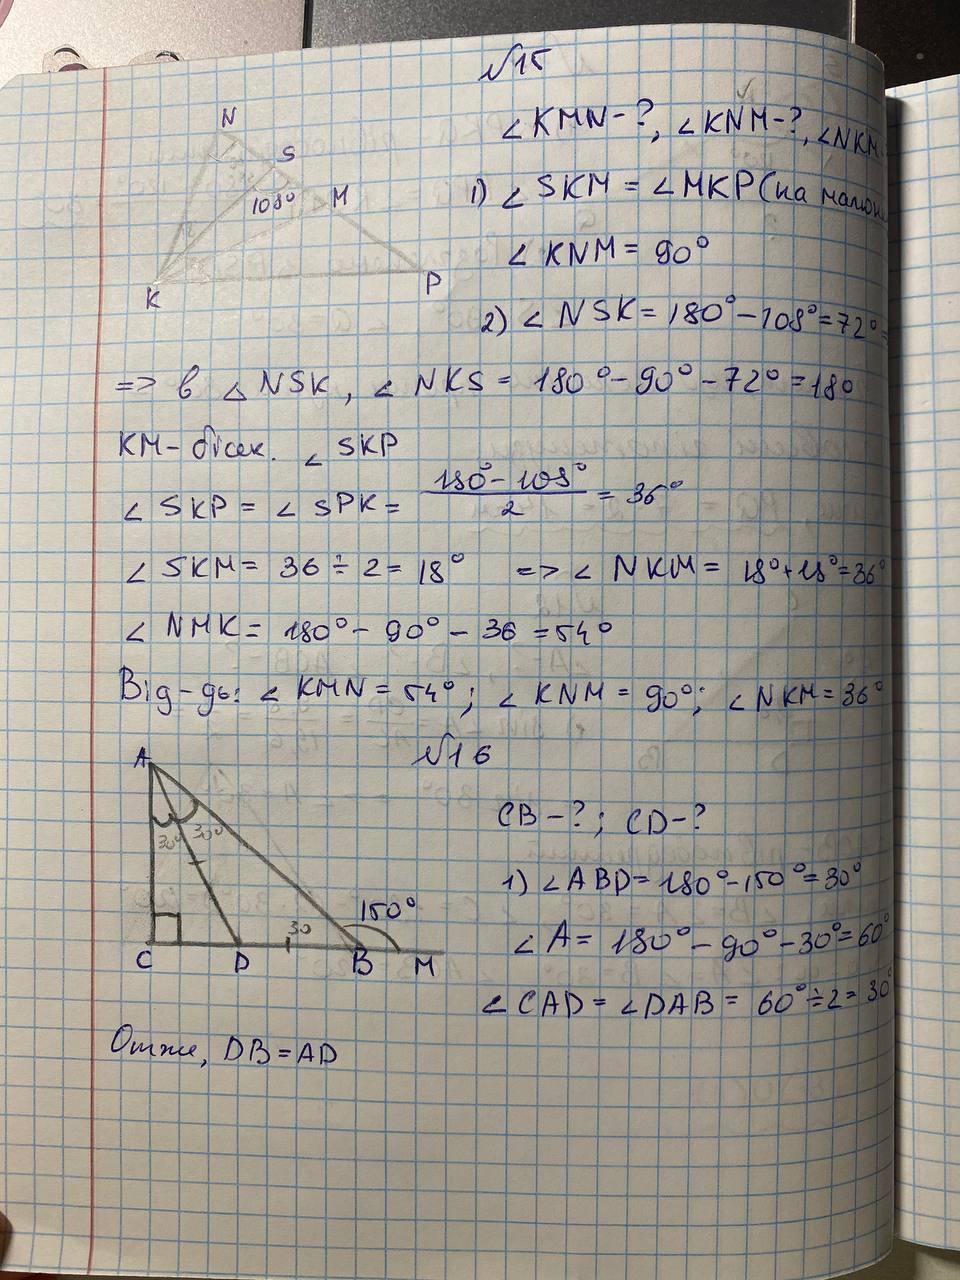 №15
N
S
108°
M
K
P
∠KMN-?, ∠KNM-?, ∠NKM
1) ∠SKM = ∠MKP (на
∠KNM = 90°
2) ∠NSK = 180° - 108° = 72° =
=> в △NSK, ∠NKS = 180° - 90° - 72° = 180
KM - бісек. ∠SKP
∠SKP = ∠SPK = (180° - 108°)/2 = 36°
∠SKM = 36 ÷ 2 = 18° => ∠NKM = 18° + 18° = 36°
∠NMK = 180° - 90° - 36 = 54°
Від-дь: ∠KMN = 54°; ∠KNM = 90°; ∠NKM = 36°
№16
A
30° 30°
30
150°
C D B M
CB-?; CD-?
1) ∠ABD = 180° - 150° = 30°
∠A = 180° - 90° - 30° = 60°
∠CAD = ∠DAB = 60° ÷ 2 = 30°
Отже, DB = AD